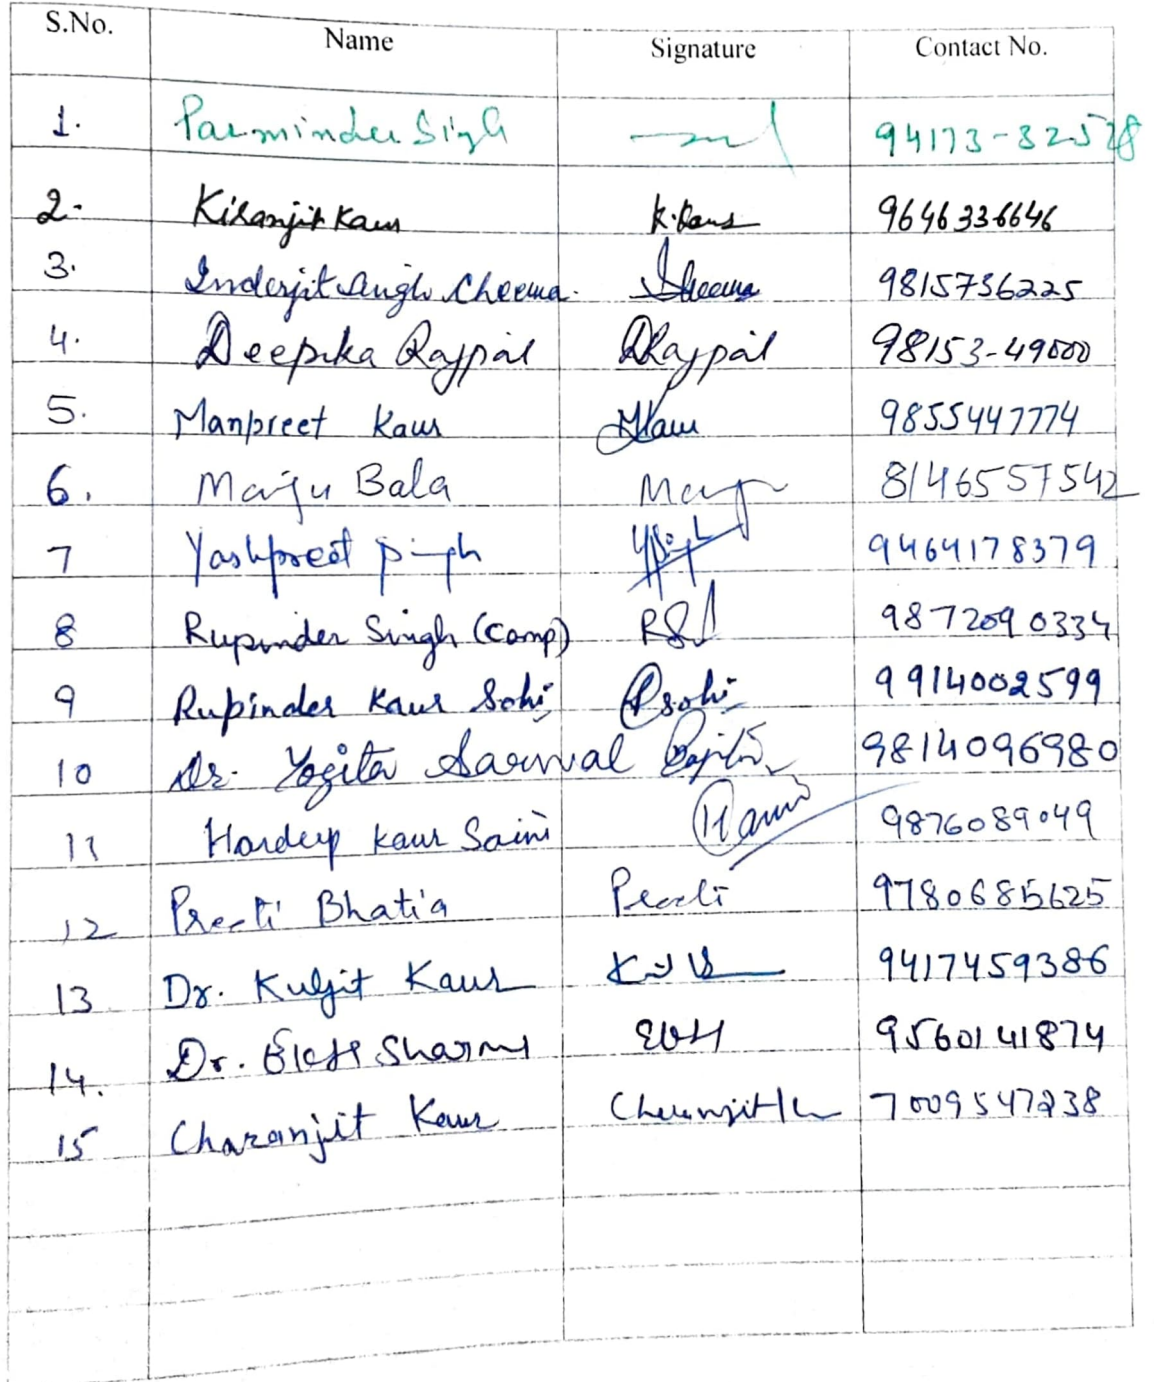 S.No. Name Signature Contact No.
1. Parminder Singh 94173-82528
2. Kiranjit Kaur K.Kaur 9646336646
3. Inderjit Singh Cheema. Cheema 9815736225
4. Deepika Rajpal DRajpal 98153-49000
5. Manpreet Kaur MKaur 9855447774
6. Manju Bala 8146557542
7 Yashpreet Singh 9464178379
8 Rupinder Singh (Comp) RS 9872090334
9 Rupinder Kaur Sohi Rsohi 9914002599
10 Dr. Yogita Sarwal 9814096980
11 Hardeep Kaur Saini 9876089049
12 Preeti Bhatia Preeti 9780685625
13 Dr. Kuljit Kaur 9417459386
14. Dr. Sharma 9560141874
15 Charanjit Kaur Charanjit K 7009547238